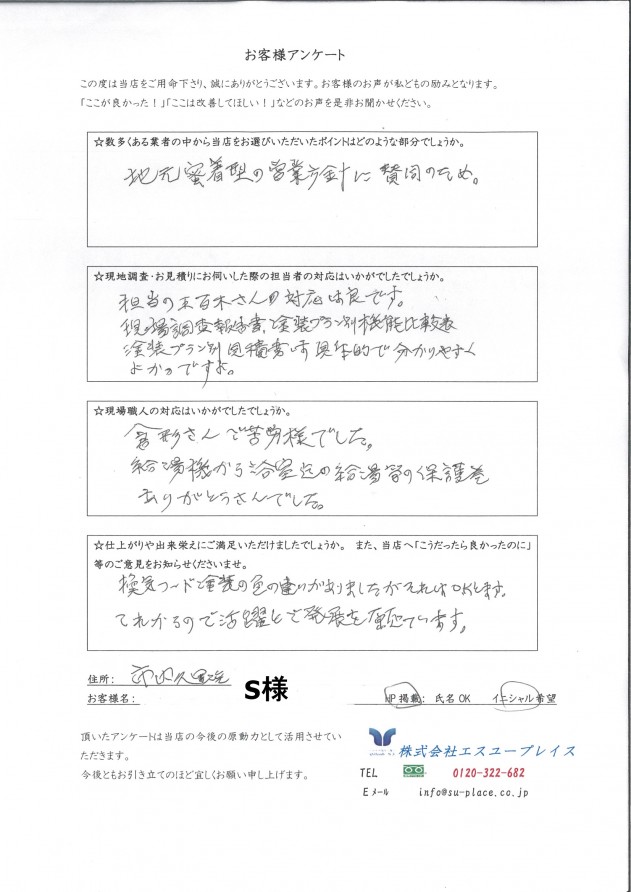 お客様アンケート
この度は当店をご用命下さり、誠にありがとうございます。お客様のお声が私どもの励みとなります。
「ここが良かった！」「ここは改善してほしい！」などのお声を是非お聞かせください。
☆数多くある業者の中から当店をお選びいただいたポイントはどのような部分でしょうか。
地元密着型の営業方針に賛同のため。
☆現地調査・お見積りにお伺いした際の担当者の対応はいかがでしたでしょうか。
担当の五百木さんの対応は良です。
現場調査報告書、塗装プラン別機能比較表
塗装プラン別見積書は具体的で分かりやすく
よかったですよ。
☆現場職人の対応はいかがでしたでしょうか。
さんご苦労様でした。
給湯機から浴室迄の給湯管の保護巻
ありがとうさんでした。
☆仕上がりや出来栄えにご満足いただけましたでしょうか。 また、当店へ「こうだったら良かったのに」
等のご意見をお知らせくださいませ。
換気フード塗装の色の違いがありましたがそれはOKとします。
で活躍とご発展を
住所：
お客様名： S様 HP掲載： 氏名OK イニシャル希望
頂いたアンケートは当店の今後の原動力として活用させてい
ただきます。
今後ともお引き立てのほど宜しくお願い申し上げます。
株式会社エスユープレイス
TEL 0120-322-682
Eメール info@su-place.co.jp